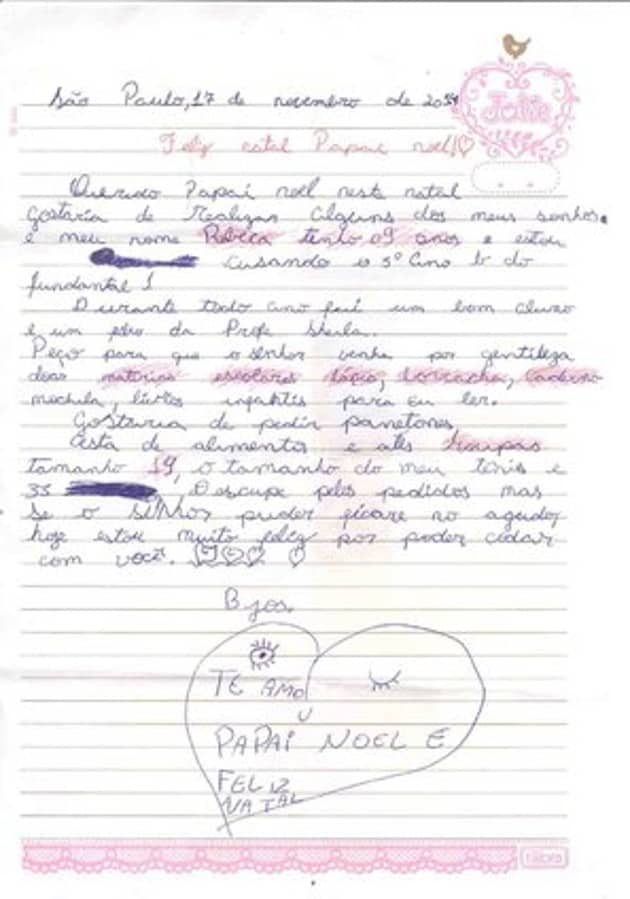 São Paulo, 17 de novembro de
Feliz natal Papai noel!
Jolie
Querido Papai noel neste natal
gostaria de Realizar alguns dos meus sonhos.
e meu nome Rebeca tenho 09 anos e estou
cusando o 3º ano b do
fundantal 1
Durante todo ano fui um bom aluno
e um da Profe Sheila.
Peço para que o senhor venha por gentileza
doar materias escolares lápis, borracha, Caderno
mochila, livros infantis para eu ler.
Gostaria de pedir panetones,
Cesta de alimentos e ates Roupas
tamanho 14, o tamanho do meu tenis e
33 Descupe pelos pedidos mas
se o senhor puder ficare no agudo,
hoje estou muito feliz por poder
com você.
Bjos.
TE AMO
PAPAI NOEL E
FELIZ
NATAL
tilibra